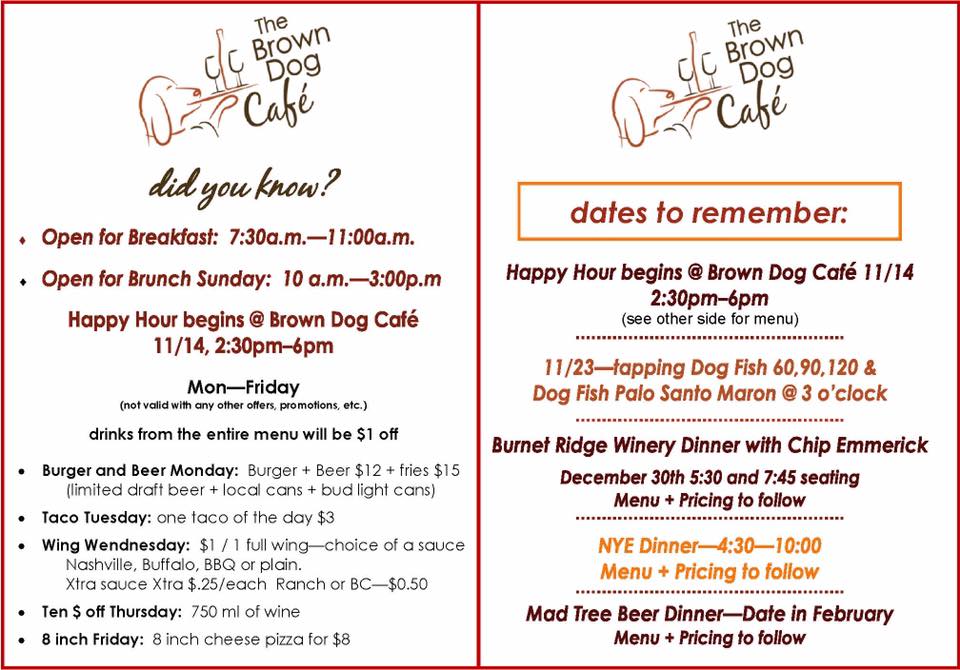 The
Brown
Dog
Café
did you know?
♦ Open for Breakfast: 7:30a.m.—11:00a.m.
♦ Open for Brunch Sunday: 10 a.m.—3:00p.m
Happy Hour begins @ Brown Dog Café
11/14, 2:30pm–6pm
Mon—Friday
(not valid with any other offers, promotions, etc.)
drinks from the entire menu will be $1 off
• Burger and Beer Monday: Burger + Beer $12 + fries $15
(limited draft beer + local cans + bud light cans)
• Taco Tuesday: one taco of the day $3
• Wing Wendnesday: $1 / 1 full wing—choice of a sauce
Nashville, Buffalo, BBQ or plain.
Xtra sauce Xtra $.25/each Ranch or BC—$0.50
• Ten $ off Thursday: 750 ml of wine
• 8 inch Friday: 8 inch cheese pizza for $8
The
Brown
Dog
Café
dates to remember:
Happy Hour begins @ Brown Dog Café 11/14
2:30pm–6pm
(see other side for menu)
11/23—tapping Dog Fish 60,90,120 &
Dog Fish Palo Santo Maron @ 3 o'clock
Burnet Ridge Winery Dinner with Chip Emmerick
December 30th 5:30 and 7:45 seating
Menu + Pricing to follow
NYE Dinner—4:30—10:00
Menu + Pricing to follow
Mad Tree Beer Dinner—Date in February
Menu + Pricing to follow